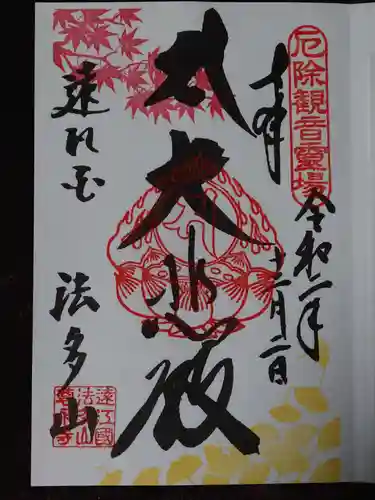 厄除觀音靈場
奉拝
令和二年
十一月二日
大悲殿
遠江国
法多山
遠江國
法多山
尊永寺